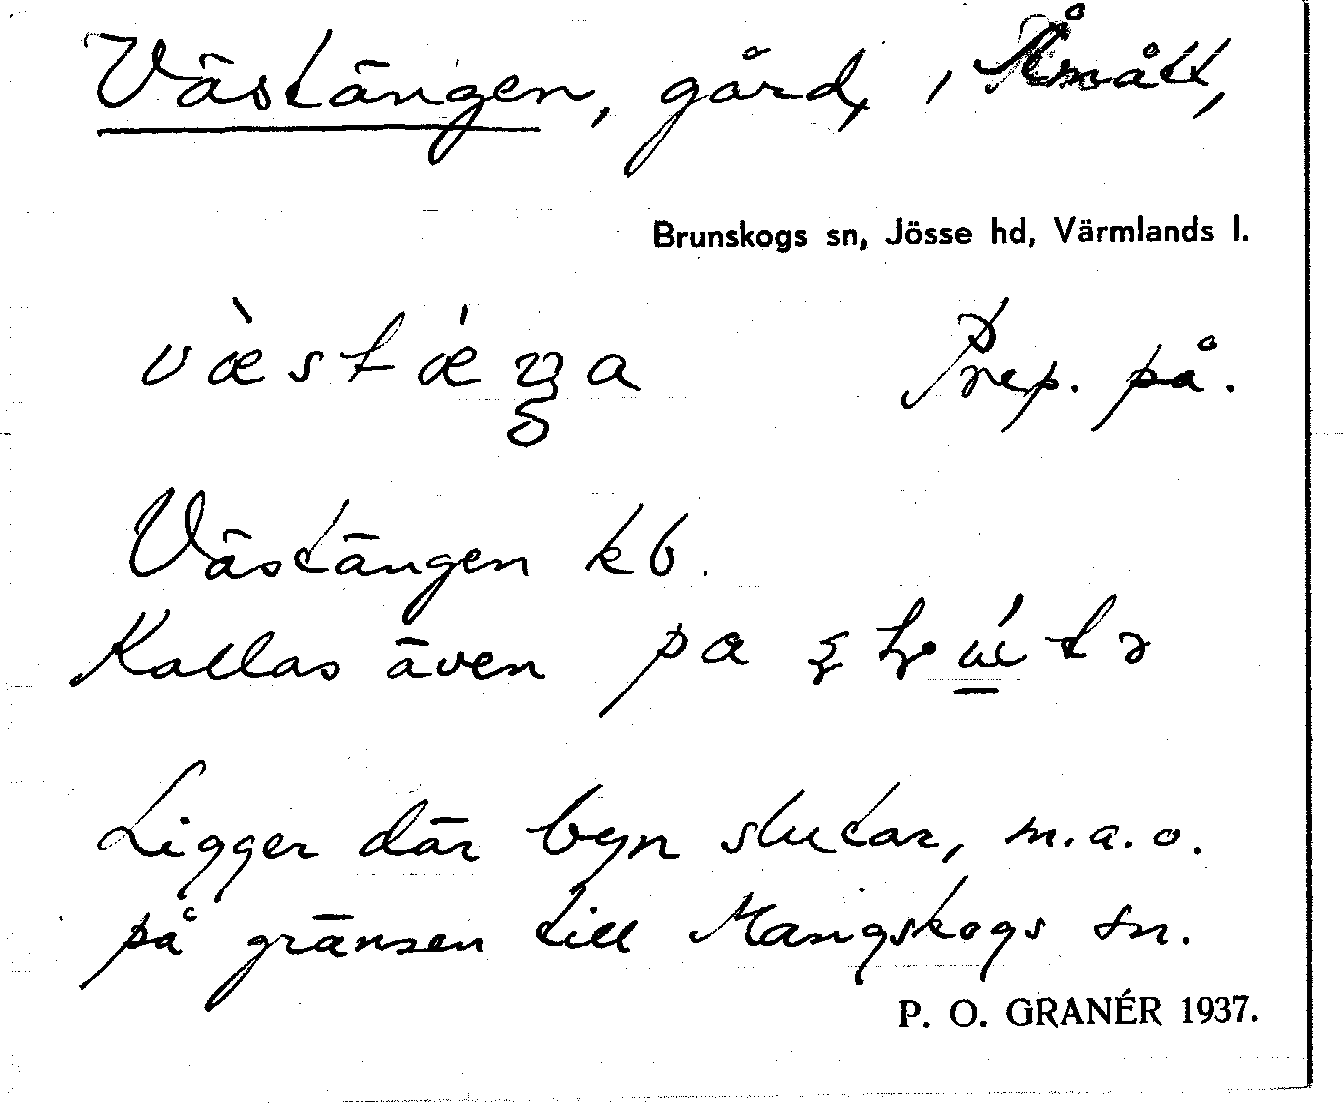 Västängen, gård, i Åmått,
Brunskogs sn, Jösse hd, Värmlands l.
Prep. på.
Västängen kb.
Kallas även
Ligger där byn slutar, m.a.o.
på gränsen till Mangskogs sn.
P. O. GRANÉR 1937.